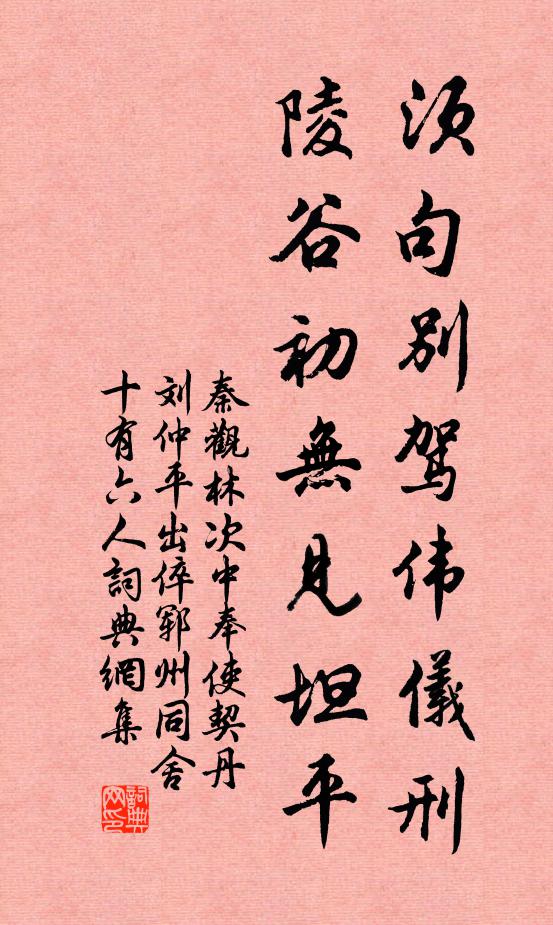 须句别驾伟儀刑
陵谷初無見坦平
秦觀林次中奉使契丹
刘仲平出倅鄆州同舍
十有六人詞典網集
詞典网印